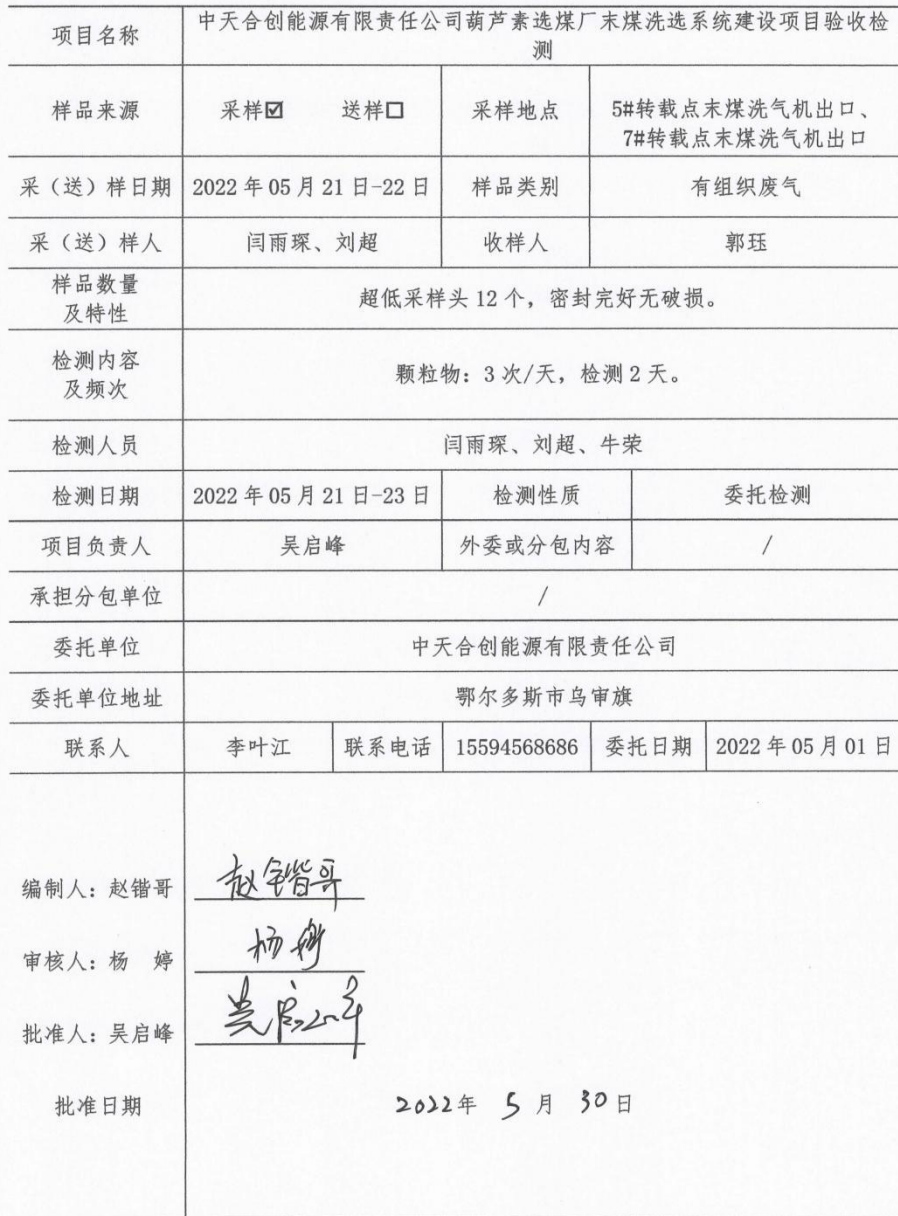 项目名称 中天合创能源有限责任公司葫芦素选煤厂末煤洗选系统建设项目验收检
测
样品来源 采样☑ 送样☐ 采样地点 5#转载点末煤洗气机出口、
7#转载点末煤洗气机出口
采（送）样日期 2022年05月21日-22日 样品类别 有组织废气
采（送）样人 闫雨琛、刘超 收样人 郭珏
样品数量
及特性 超低采样头12个，密封完好无破损。
检测内容
及频次 颗粒物：3次/天，检测2天。
检测人员 闫雨琛、刘超、牛荣
检测日期 2022年05月21日-23日 检测性质 委托检测
项目负责人 吴启峰 外委或分包内容 /
承担分包单位 /
委托单位 中天合创能源有限责任公司
委托单位地址 鄂尔多斯市乌审旗
联系人 李叶江 联系电话 15594568686 委托日期 2022年05月01日
编制人：赵锴哥 赵锴哥
审核人：杨 婷 杨婷
批准人：吴启峰 吴启峰
批准日期 2022年 5月 30日